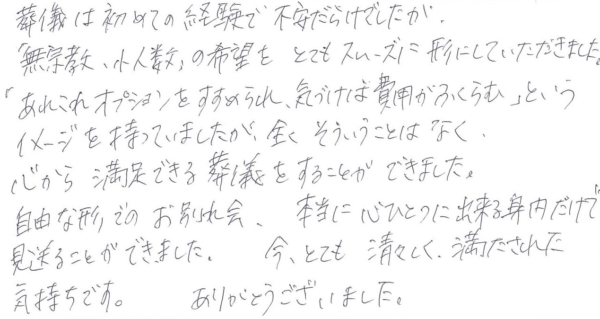 葬儀は初めての経験で不安だらけでしたが、
「無宗教、小人数」の希望をとてもスムーズに形にしていただきました。
「あれこれオプションをすすめられ、気づけば費用がふくらむ」という
イメージを持っていましたが、全くそういうことはなく、
心から満足できる葬儀をすることができました。
自由な形でのお別れ会、本当に心ひとつに出来る身内だけで
見送ることができました。 今、とても清々しく、満たされた
気持ちです。 ありがとうございました。